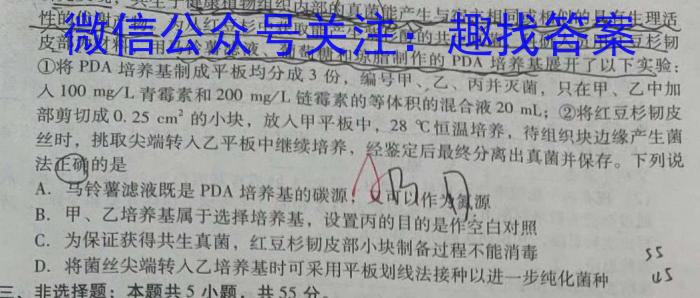 共生于健康植物组织内部的真菌能产生与
性的
微信公众号关注：趣找答案
制作的PDA培养基展开了以下实验：
①将PDA培养基制成平板均分成3份，编号甲、乙、丙并灭菌，只在甲、乙中加
入100 mg/L青霉素和200 mg/L链霉素的等体积的混合液20 mL；②将红豆杉韧皮
部剪切成0.25 cm²的小块，放入甲平板中，28 ℃恒温培养，待组织块边缘产生菌
丝时，挑取尖端转入乙平板中继续培养，经鉴定后最终分离出真菌并保存。下列说
法正确的是
A. 马铃薯滤液既是PDA培养基的碳源，又可以作为氮源
B. 甲、乙培养基属于选择培养基，设置丙的目的是作空白对照
C. 为保证获得共生真菌，红豆杉韧皮部小块制备过程不能消毒
D. 将菌丝尖端转入乙培养基时可采用平板划线法接种以进一步纯化菌种
三、非选择题：本题共5小题，共55分。
55
45